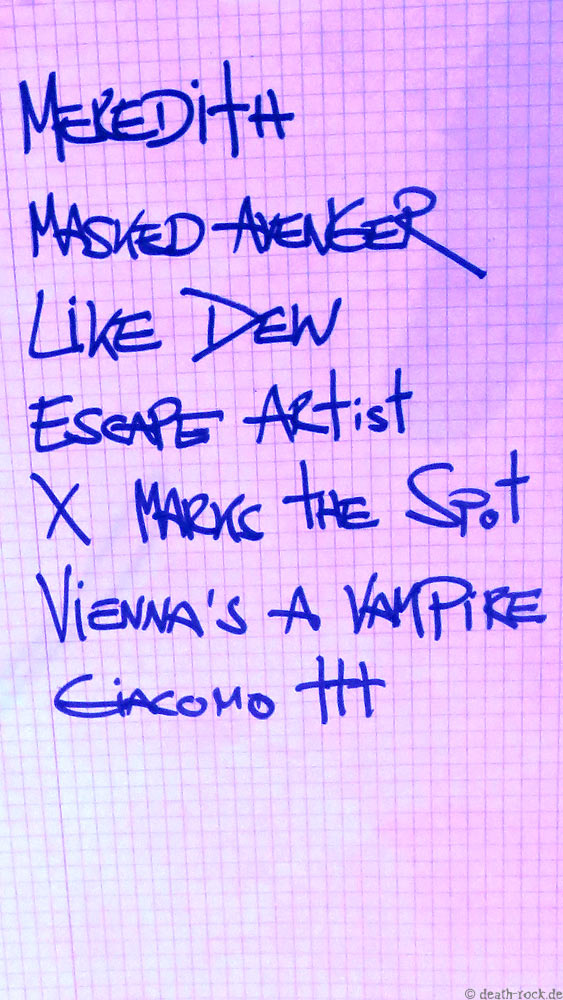 MEREDITH
MASKED AVENGER
LIKE DEW
ESCAPE ARTIST
X MARKS THE SPOT
VIENNA'S A VAMPIRE
GIACOMO ttt
© death-rock.de